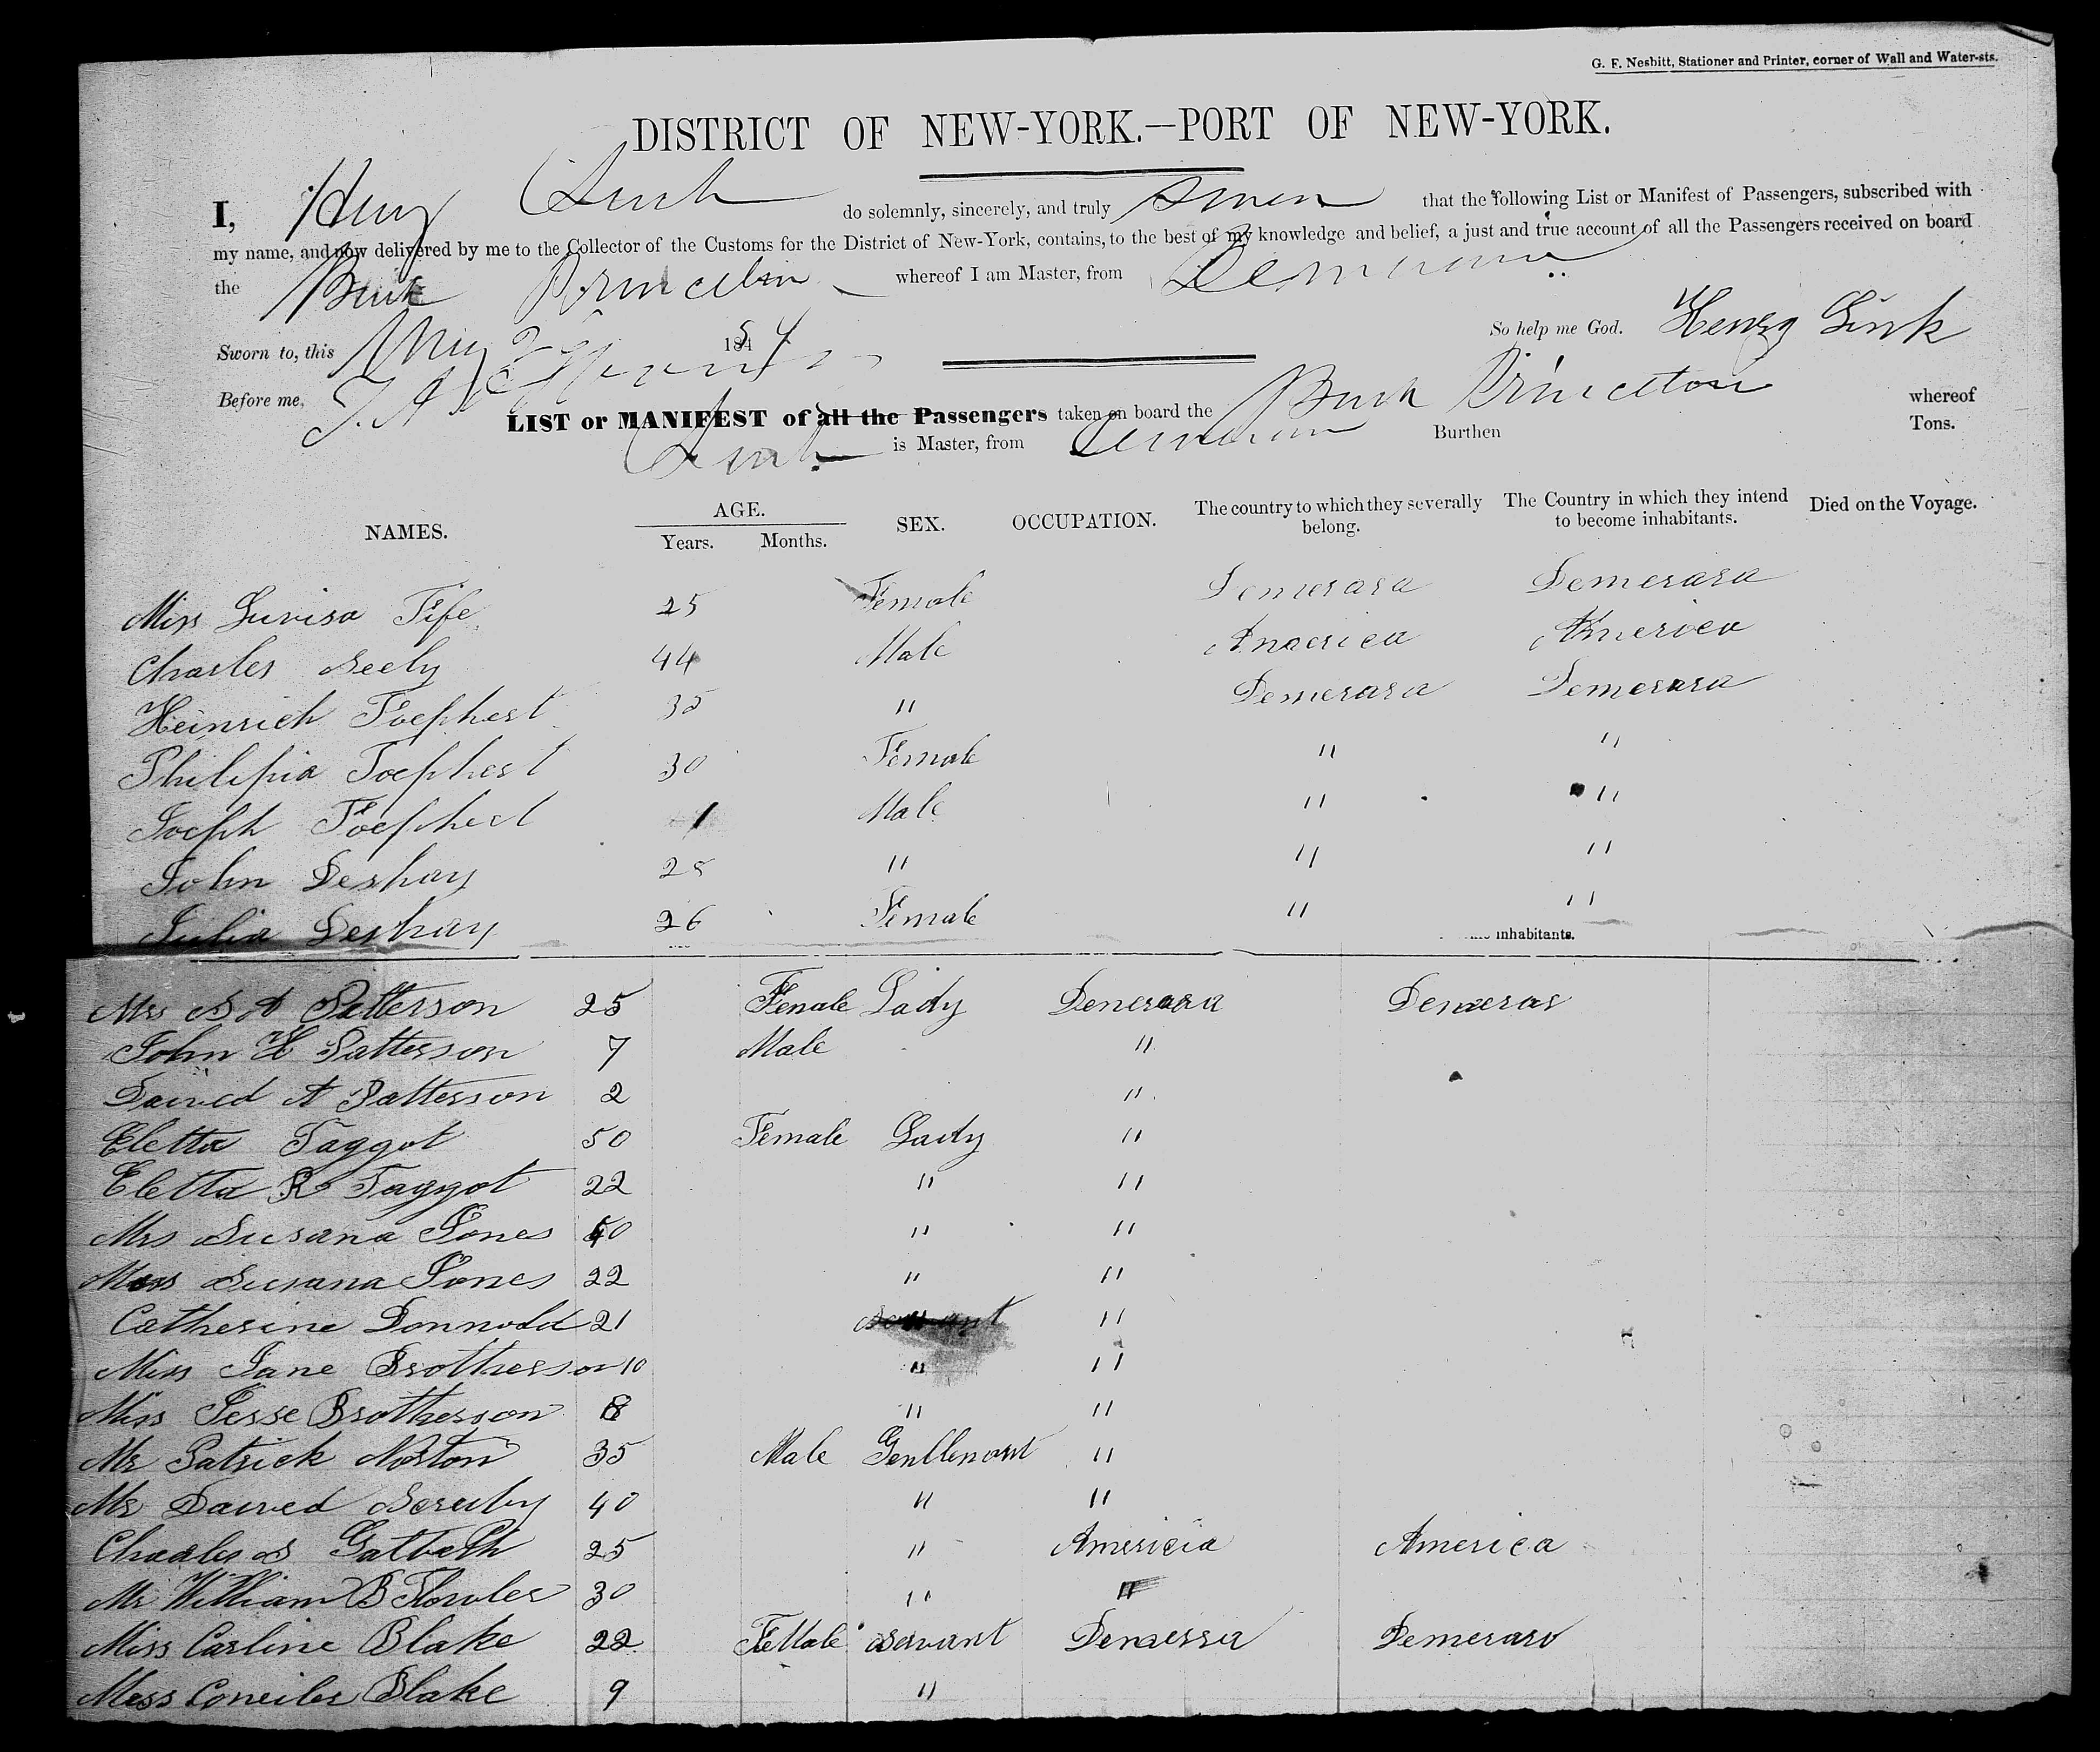 G. F. Nesbitt, Stationer and Printer, corner of Wall and Water-sts.
DISTRICT OF NEW-YORK.—PORT OF NEW-YORK.
I, Henry do solemnly, sincerely, and truly swear that the following List or Manifest of Passengers, subscribed with
my name, and now delivered by me to the Collector of the Customs for the District of New-York, contains, to the best of my knowledge and belief, a just and true account of all the Passengers received on board
the Bark Princeton whereof I am Master, from Demerara
So help me God. Henry
Sworn to, this 1854
Before me,
LIST or MANIFEST of all the Passengers taken on board the Bark Princeton whereof
is Master, from Demerara Burthen Tons.
NAMES. AGE. Years. Months. SEX. OCCUPATION. The country to which they severally belong. The Country in which they intend to become inhabitants. Died on the Voyage.
Miss Luvisa Fife 25 Female Demerara Demerara
Charles Seely 44 Male America America
Heinrich 35 " Demerara Demerara
Philipia 30 Female " "
Joeph 1 Male " "
John Deshay 28 " " "
Julia Deshay 26 Female " "
inhabitants.
Mrs S A Patterson 25 Female Lady Demerara Demerar
John H Patterson 7 Male "
Daived A Patterson 2 "
Eletta Taggot 50 Female Lady "
Eletta R Taggot 22 " "
Mrs Susana Jones " "
Miss Susana Jones 22 " "
Catherine Donnold 21 Servant "
Miss Jane Brotherson 10 " "
Miss Jesse Brotherson 8 " "
Mr Patrick Norton 35 Male Gentlemant "
Mr Daived Scruby 40 " "
Charles S 25 " Americia America
Mr William B Flowler 30 " "
Miss Carline Blake 22 Female Servant Demerra Demeraro
Miss Blake 9 "